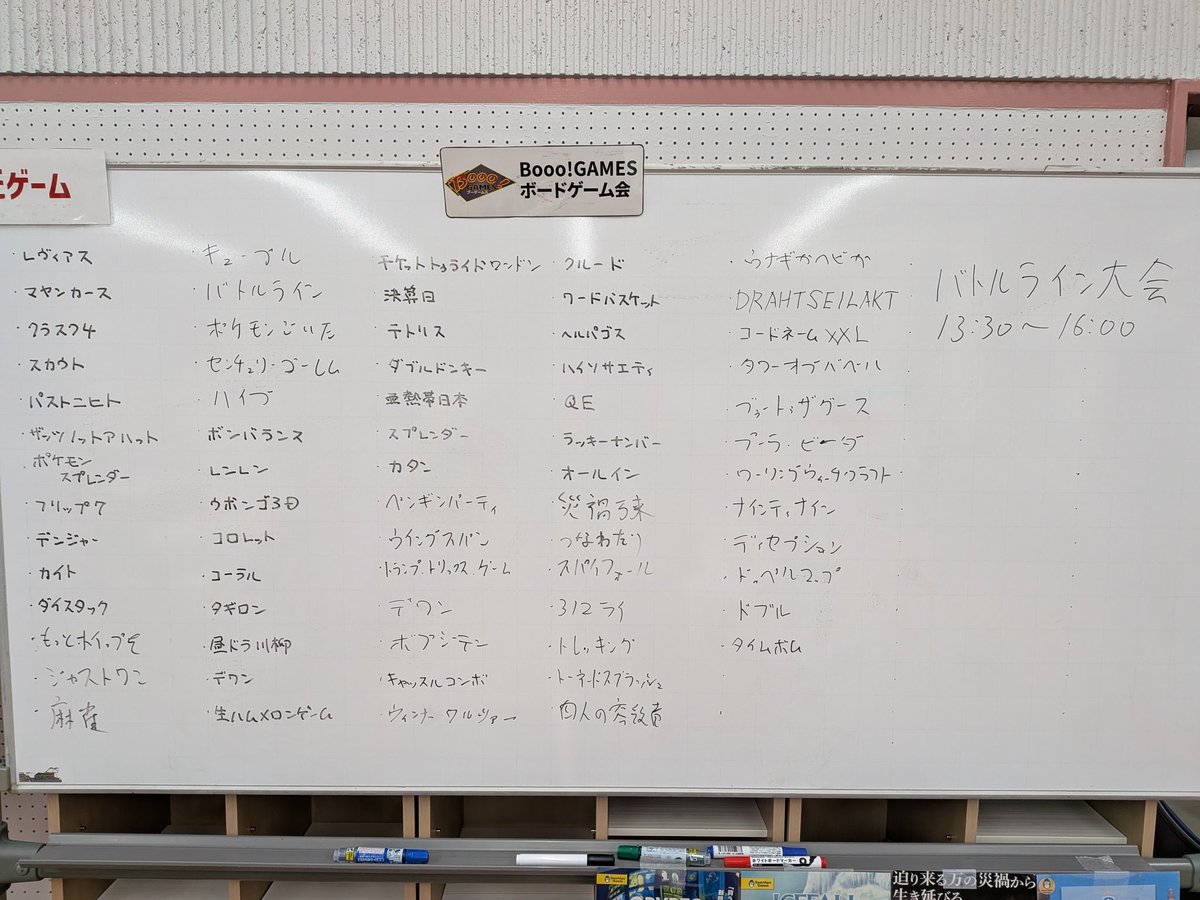 Eゲーム
BOOO!
GAMES
Booo!GAMES
ボードゲーム会
・レヴィアス
・マヤンカース
・クラスク4
・スカウト
・パストニヒト
・ザッツノットアハット
・ポケモン
スプレンダー
・フリップ7
・デンジャー
・カイト
・ダイスタック
・もっとホイップを
・ジャストワン
・麻雀
・キューブル
・バトルライン
・ポケモンごいた
・センチュリーゴーレム
・ハイブ
・ボンバランス
・レンレン
・ウボンゴ3D
・コロレット
・コーラル
・タギロン
・昼ドラ川柳
・デワン
・生ハム×ロンゲーム
・チケットトゥライドロンドン
・決算日
・テトリス
・ダブルドンキー
・亜熱帯日本
・スプレンダー
・カタン
・ペンギンパーティ
・ウイングスパン
・トランプ・トリックス・ゲーム
・デワン
・ボブジテン
・キャッスルコンボ
・ウィンナーワルツァー
・クルード
・ワードバスケット
・ヘルパゴス
・ハイソサエティ
・QE
・ラッキーナンバー
・オールイン
・災禍万来
・つなわたり
・スパイフォール
・312ライ
・トレッキング
・トーネードスプラッシュ
・四人の容疑者
・ウナギかヘビか
・DRAHTSEILAKT
・コードネームXXL
・タワーオブバベル
・ブゥートゥザグース
・ブーラ・ビーダ
・ワーリングウィッチクラフト
・ナインティナイン
・ディセプション
・ドッペルコップ
・ドブル
・タイムボム
バトルライン大会
13:30〜16:00
迫り来る万の災禍から
生き延びる